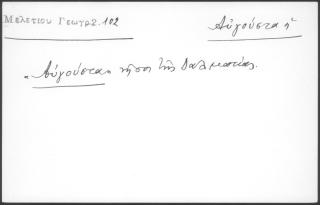 Μελετίου Γεωγρ. 102
Αὐγούστα ἡ
«Αὐγούστα» νῆσος τῆς Δαλματίας.